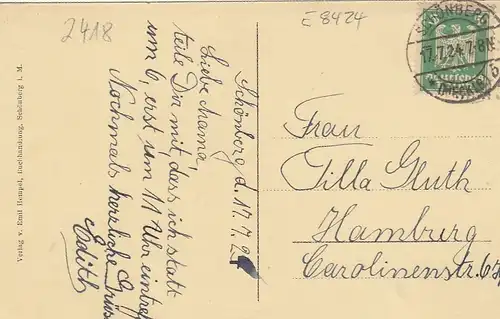 2418
E 8424
SCHÖNBERG
17.7.24.7-8
Schönberg d. 17.7.24
Liebe Mama,
teile Dir mit, dass ich statt
um 6, erst um 11 Uhr eintref
Nochmals herzliche Grüs
Edith
Frau
Tilla Gluth
Hamburg
Carolinenstr. 6
Verlag v. Emil Hempel, Buchhandlung, Schönberg i. M.